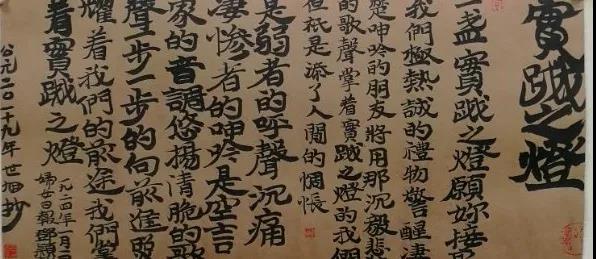 實踐之燈
一盞實踐之燈願妳接
我們極熱誠的禮物警醒淒
楚呻吟的朋友將用那沉毅悲
的歌聲掌着實踐之燈的我們
但祇是添了人間的惆悵
是弱者的呼聲沉痛
淒慘者的呻吟是空言
家的音調悠揚清脆的歌
聲一步一步的向前進照
耀着我們的前途我們掌
着實踐之燈
一九二四年一月一
婦女日報鄧穎
公元二〇一九年 抄